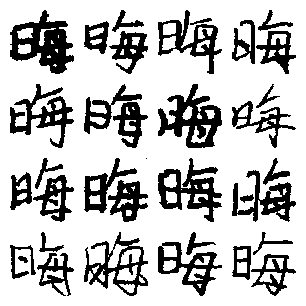 晦晦晦晦
晦晦晦晦
晦晦晦晦
晦晦晦晦